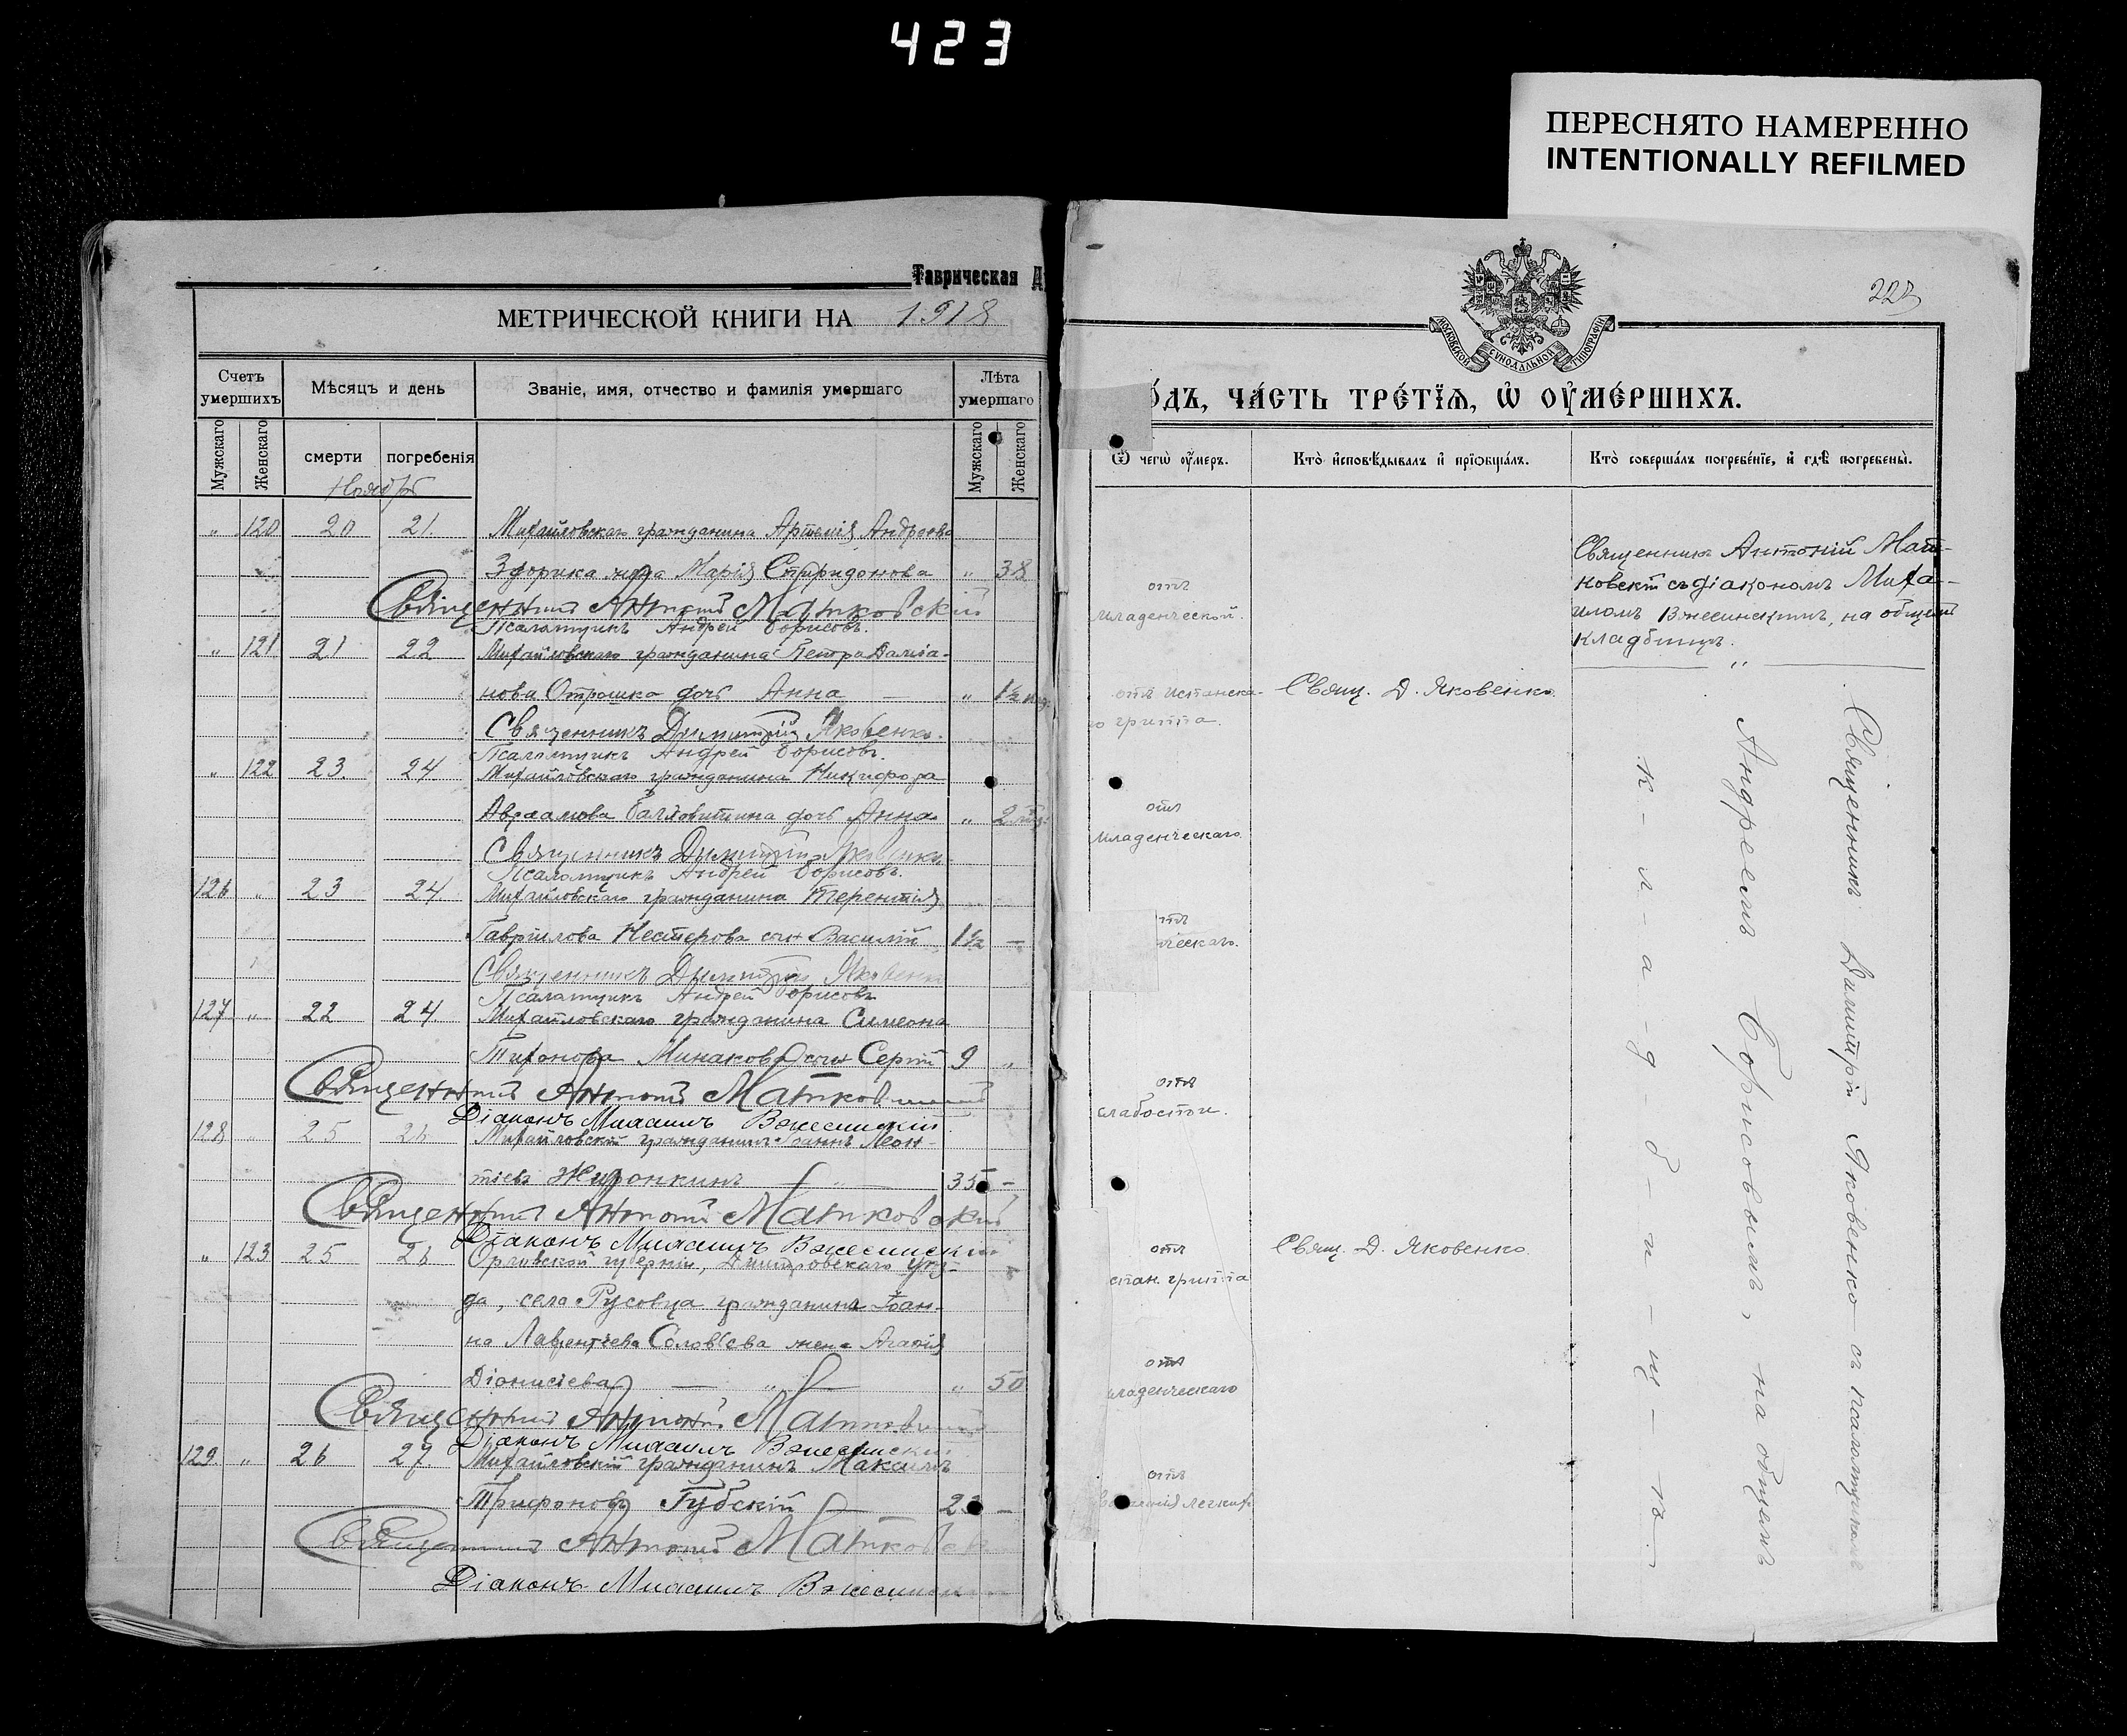 423
ПЕРЕСНЯТО НАМЕРЕННО
INTENTIONALLY REFILMED
Таврическая
МЕТРИЧЕСКОЙ КНИГИ НА 1918
Счетъ умершихъ
Мѣсяцъ и день
Званіе, имя, отчество и фамилія умершаго
Лѣта умершаго
Мужскаго
Женскаго
смерти
погребенія
Мужскаго
Женскаго
Ноябрь
" 120 20 21. Михайловскаго гражданина Артемія Андреева
жена Марія Спиридонова " 38
Священникъ Антоній Матковскій
Псаломщикъ Андрей Борисовъ.
" 121 21 22 Михайловскаго гражданина Петра Даміа-
нова Отрошка дочь Анна — " 1½
Священникъ Димитрій Яковенко.
Псаломщикъ Андрей Борисовъ.
" 122 23 24 Михайловскаго гражданина Никифора
Авраамова дочь Анна " 2
Священникъ Димитрій Яковенко
Псаломщикъ Андрей Борисовъ.
126 " 23 24. Михайловскаго гражданина Терентія
Гавріилова Нестерова сын Василій 1½ —
Священникъ Димитрій Яковенко
Псаломщикъ Андрей Борисовъ
127 " 22 24 Михайловскаго гражданина Симеона
Тихонова Минакова сын Сергій 9 "
Священникъ Антоній Матковскій
Діаконъ Михаилъ
128 " 25 26 Михайловскій гражданинъ Іоаннъ Леон-
тіевъ 35 —
Священникъ Антоній Матковскій
Діаконъ Михаилъ
" 123 25 26 Орловской губерніи, Дмитровскаго уѣз-
да, села гражданина Іоан-
на Лаврентіева Соловьева жена Агафія
Діонисіева — " — " 50
Священникъ Антоній Матковскій
Діаконъ Михаилъ
129 " 26 27 Михайловскій гражданинъ Максимъ
Трифоновъ Губскій — 23 —
Священникъ Антоній Матковскій
Діаконъ Михаилъ
МОСКОВСКОЙ СѴНОДАЛЬНОЙ ТИПОГРАФІИ
О́ДЪ, ЧА́СТЬ ТРЕ́ТЇѦ, Ѡ҆ ОУ҆МЕ́РШИХЪ.
Ѿ чегѡ̀ оу҆́меръ.
Кто̀ и҆сповѣ́дывалъ и҆ прїѻбща́лъ.
Кто̀ соверша́лъ погребе́нїе, и҆ гдѣ̀ погребены̀.
отъ
младенческой.
Священникъ Антоній Мат-
ковскій съ діакономъ Миха-
иломъ на общемъ
кладбищѣ.
отъ испанска-
го гриппа.
Свящ. Д. Яковенко.
отъ
младенческаго.
отъ
ческаго.
отъ
слабости.
отъ
спан. гриппа
Свящ. Д. Яковенко.
отъ
младенческаго
отъ
легкихъ
Священникъ Димитрій Яковенко съ псаломщикомъ
Андреемъ Борисовымъ, на общемъ
к-л-а-д-б-и-щ-ѣ-